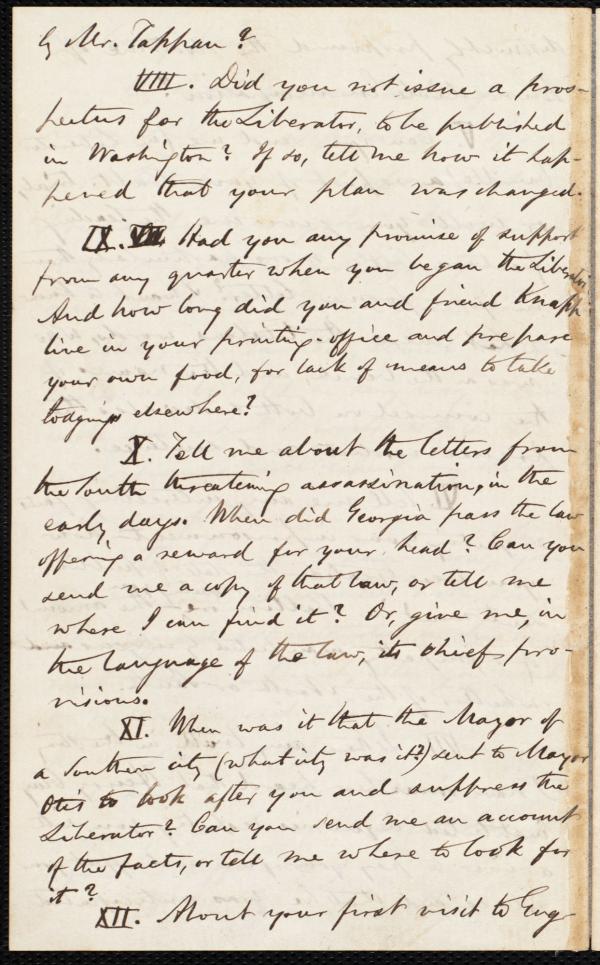 by Mr. Tappan?
VIII. Did you not issue a pros-
pectus for the Liberator, to be published
in Washington? If so, tell me how it hap-
pened that your plan was changed.
IX. Had you any promise of support
from any quarter when you began the Liberator
And how long did you and friend Knapp
live in your printing-office and prepare
your own food, for lack of means to take
lodgings elsewhere?
X. Tell me about the letters from
the South threatening assassination, in the
early days. When did Georgia pass the law
offering a reward for your head? Can you
send me a copy of that law, or tell me
where I can find it? Or, give me, in
the language of the law, its chief pro-
visions.
XI. When was it that the Mayor of
a Southern city (what city was it?) sent to Mayor
Otis to look after you and suppress the
Liberator? Can you send me an account
of the facts, or tell me where to look for
it?
XII. About your first visit to Eng-